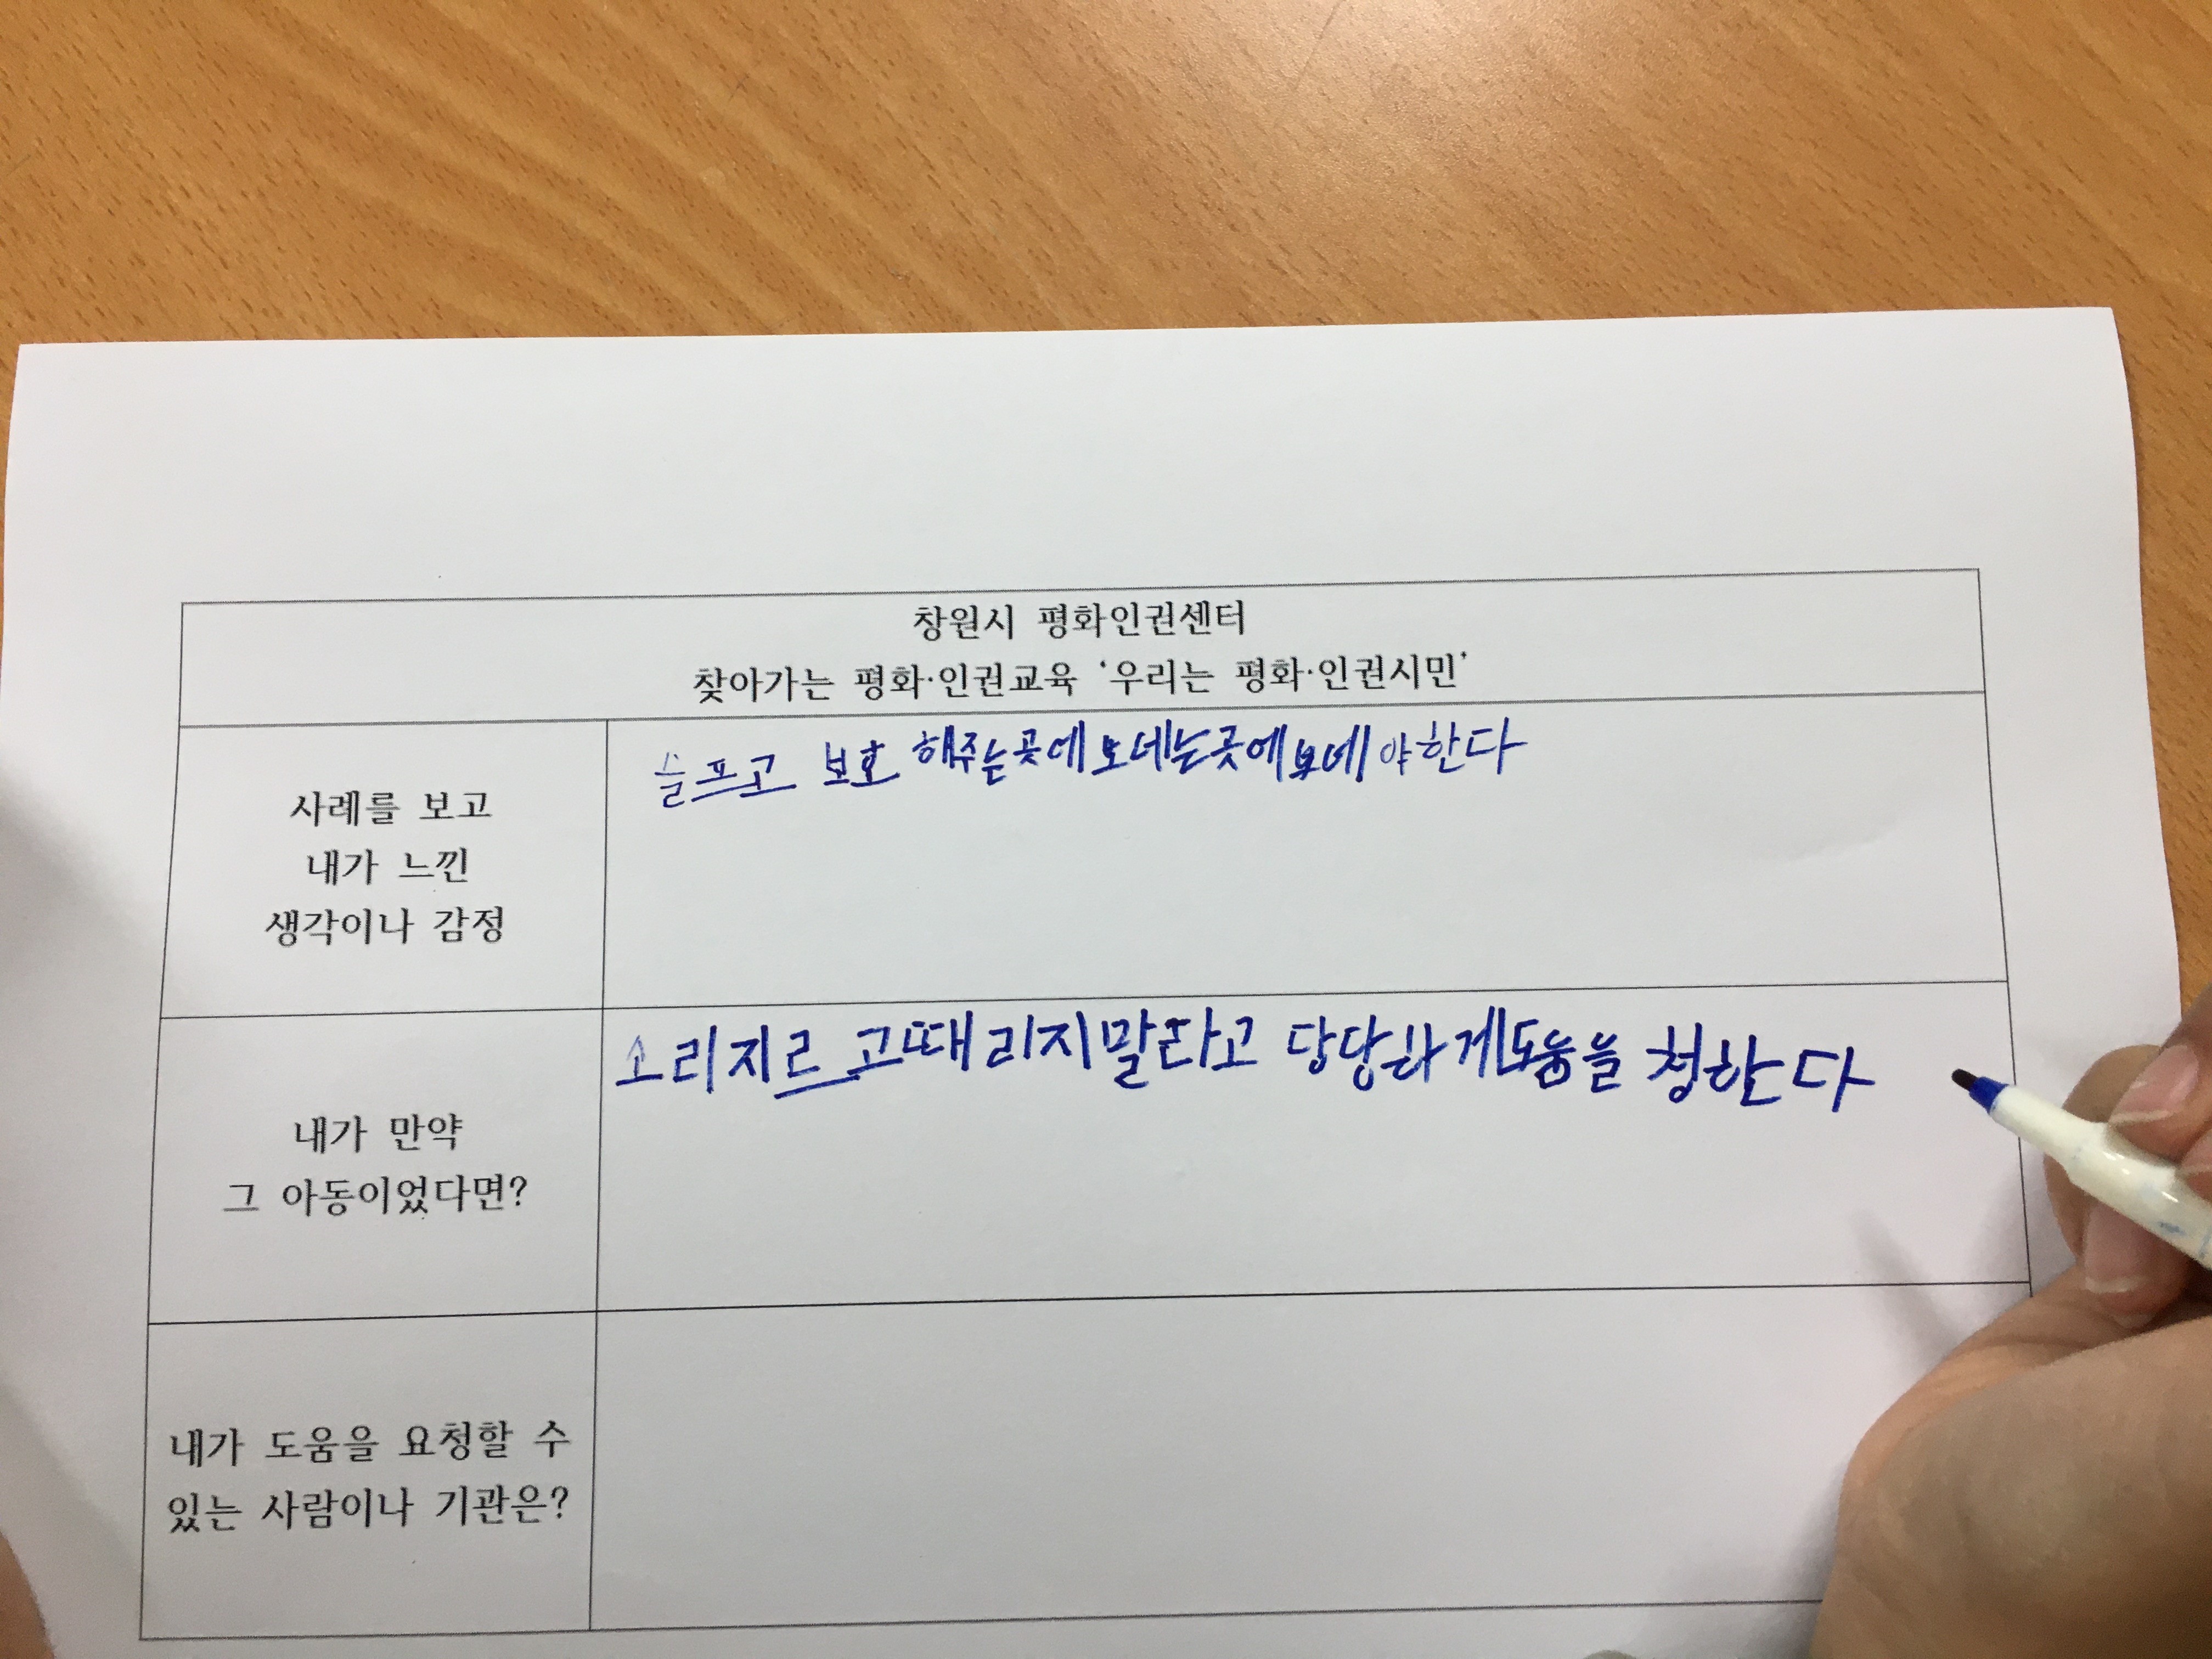 창원시 평화인권센터
찾아가는 평화·인권교육 '우리는 평화·인권시민'
사례를 보고
내가 느낀
생각이나 감정
슬프고 보호 해주는곳에보네는곳에보네야한다
내가 만약
그 아동이었다면?
소리지르고때리지말라고 당당하게도움을 청한다
내가 도움을 요청할 수
있는 사람이나 기관은?